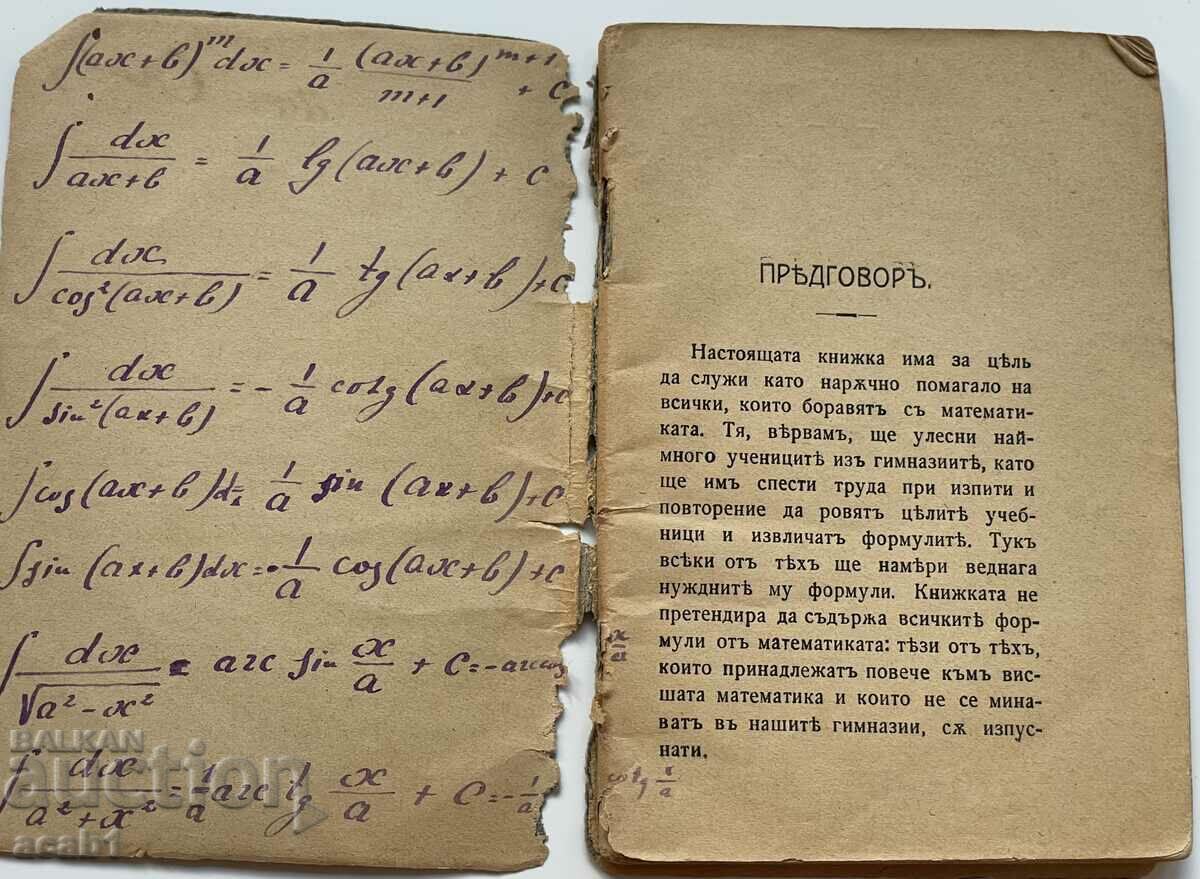 ∫(ax+b)^m dx = 1/a (ax+b)^(m+1)/(m+1) + C
∫ dx/(ax+b) = 1/a lg(ax+b) + C
∫ dx/cos²(ax+b) = 1/a tg(ax+b) + C
∫ dx/sin²(ax+b) = - 1/a cotg(ax+b) + C
∫cos(ax+b)dx = 1/a sin(ax+b) + C
∫sin(ax+b)dx = - 1/a cos(ax+b) + C
∫ dx/√(a²-x²) = arc sin x/a + C = - arc cos x/a
∫ dx/(a²+x²) = 1/a arc tg x/a + C = - 1/a cotg x/a
ПРѢДГОВОРЪ.
Настоящата книжка има за цѣль
да служи като нарѫчно помагало на
всички, които боравятъ съ математи-
ката. Тя, вѣрвам, ще улесни най-
много ученицитѣ изъ гимназиитѣ, като
ще имъ спести труда при изпити и
повторение да ровятъ цѣлитѣ учеб-
ници и извличатъ формулитѣ. Тукъ
всѣки отъ тѣхъ ще намѣри веднага
нужднитѣ му формули. Книжката не
претендира да съдържа всичкитѣ фор-
мули отъ математиката: тѣзи отъ тѣхъ,
които принадлежатъ повече къмъ вис-
шата математика и които не се мина-
ватъ въ нашитѣ гимназии, сѫ изпус-
нати.
BALKAN
auction
acab1